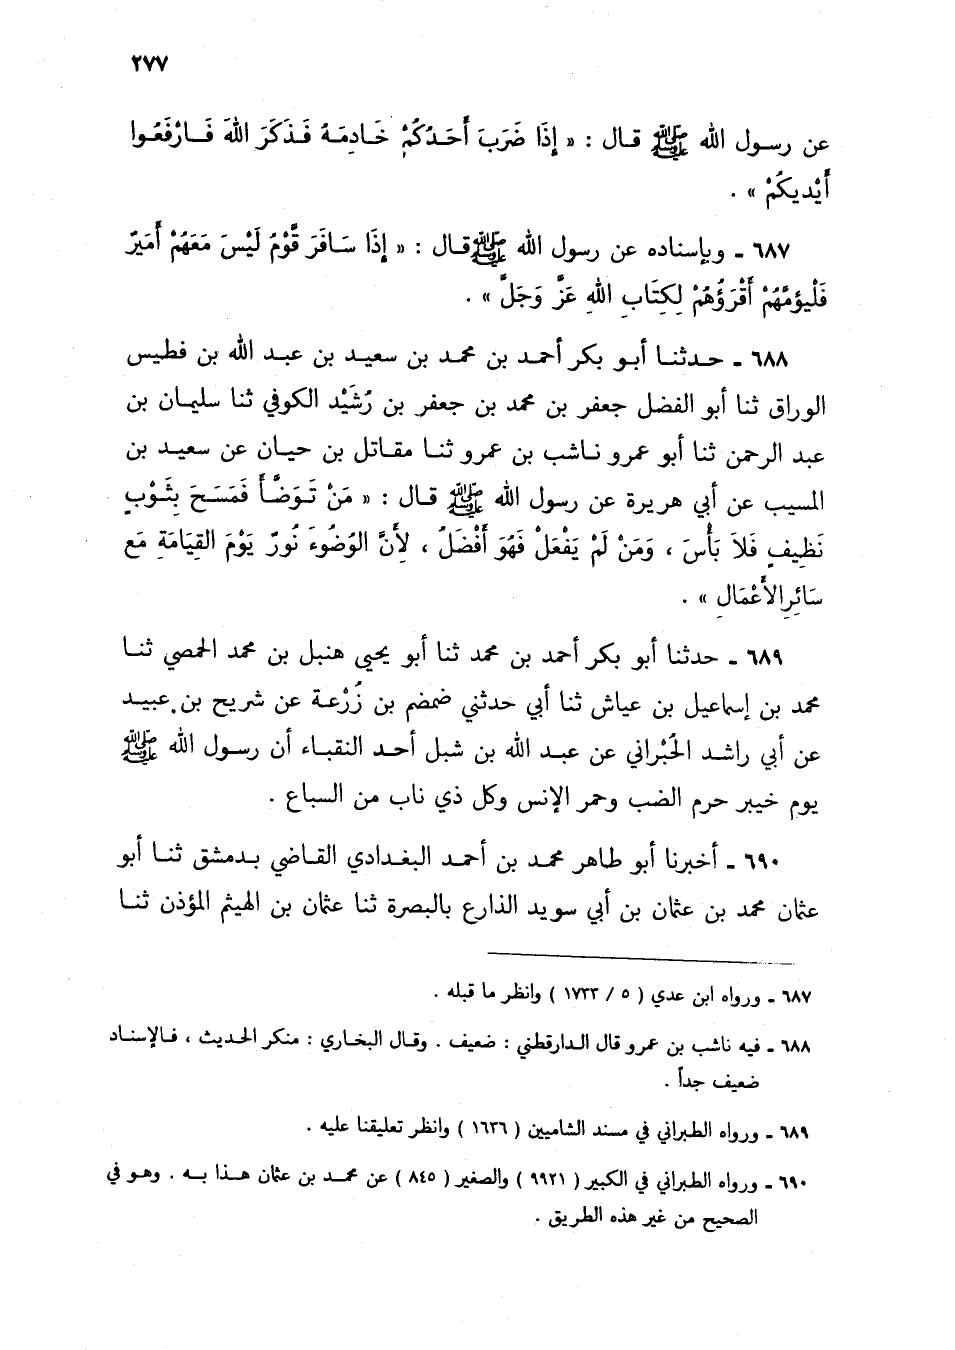 ٢٧٧
عن رسول الله ﷺ قال : « إِذَا ضَرَبَ أَحَدُكُمْ خَادِمَهُ فَذَكَرَ اللهَ فَارْفَعُوا
أَيْدِيكُمْ » .
٦٨٧ ـ وبإسناده عن رسول الله ﷺ قال : « إِذَا سَافَرَ قَوْمٌ لَيْسَ مَعَهُمْ أَمِيرٌ
فَلْيَؤُمَّهُمْ أَقْرَؤُهُمْ لِكِتَابِ اللهِ عَزَّ وَجَلَّ » .
٦٨٨ ـ حدثنا أبو بكر أحمد بن محمد بن سعيد بن عبد الله بن فطيس
الوراق ثنا أبو الفضل جعفر بن محمد بن جعفر بن رُشَيْد الكوفي ثنا سليمان بن
عبد الرحمن ثنا أبو عمرو ناشب بن عمرو ثنا مقاتل بن حيان عن سعيد بن
المسيب عن أبي هريرة عن رسول الله ﷺ قال : « مَنْ تَوَضَّأَ فَمَسَحَ بِثَوْبٍ
نَظِيفٍ فَلاَ بَأْسَ ، وَمَنْ لَمْ يَفْعَلْ فَهُوَ أَفْضَلُ ، لأَنَّ الوُضُوءَ نُورٌ يَوْمَ القِيَامَةِ مَعَ
سَائِرِ الأَعْمَالِ » .
٦٨٩ ـ حدثنا أبو بكر أحمد بن محمد ثنا أبو يحيى هنبل بن محمد الحمصي ثنا
محمد بن إسماعيل بن عياش ثنا أبي حدثني ضمضم بن زُرْعة عن شريح بن عبيد
عن أبي راشد الحُبْراني عن عبد الله بن شبل أحد النقباء أن رسول الله ﷺ
يوم خيبر حرم الضب وحمر الإنس وكل ذي ناب من السباع .
٦٩٠ ـ أخبرنا أبو طاهر محمد بن أحمد البغدادي القاضي بدمشق ثنا أبو
عثمان محمد بن عثمان بن أبي سويد الذارع بالبصرة ثنا عثمان بن الهيثم المؤذن ثنا
٦٨٧ ـ ورواه ابن عدي ( ٥ / ١٧٣٣ ) وانظر ما قبله .
٦٨٨ ـ فيه ناشب بن عمرو قال الدارقطني : ضعيف . وقال البخاري : منكر الحديث ، فالإسناد
ضعيف جداً .
٦٨٩ ـ ورواه الطبراني في مسند الشاميين ( ١٦٣٦ ) وانظر تعليقنا عليه .
٦٩٠ ـ ورواه الطبراني في الكبير ( ٩٩٢١ ) والصغير ( ٨٤٥ ) عن محمد بن عثمان هذا به . وهو في
الصحيح من غير هذه الطريق .